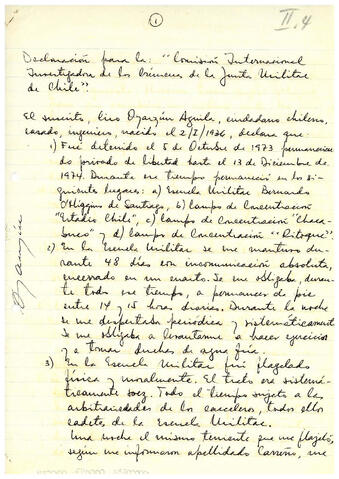 1
II.4
Declaración para la: "Comisión Internacional
Investigadora de los Crímenes de la Junta Militar
de Chile".
El suscrito, Ciro Oyarzún Aguila, ciudadano chileno,
casado, ingeniero, nacido el 2/I/1936, declara que:
1) Fuí detenido el 5 de Octubre de 1973 permaneciendo
privado de libertad hasta el 13 de Diciembre de
1974. Durante ese tiempo permanecí en los si-
guientes lugares: a) Escuela Militar Bernardo
O'Higgins de Santiago, b) campo de Concentración
"Estadio Chile", c) campo de Concentración "Chaca-
buco" y d) campo de Concentración "Ritoque".
2) En la Escuela Militar se me mantuvo du-
rante 48 días con incomunicación absoluta,
encerrado en un cuarto. Se me obligaba, duran-
te todo ese tiempo, a permanecer de pie
entre 14 y 15 horas diarias. Durante la noche
se me despertaba periódica y sistemáticamente
Se me obligaba a levantarme a hacer ejercicios
y a tomar duchas de agua fría.
3) En la Escuela Militar fuí flagelado
física y moralmente. El trato era sistemá-
ticamente soez. Todo el tiempo sujeto a las
arbitrariedades de los carceleros, todos ellos
cadetes de la Escuela Militar.
Una noche el mismo teniente que me flageló,
según me informaron apellidado Carreño, me
Oyarzún